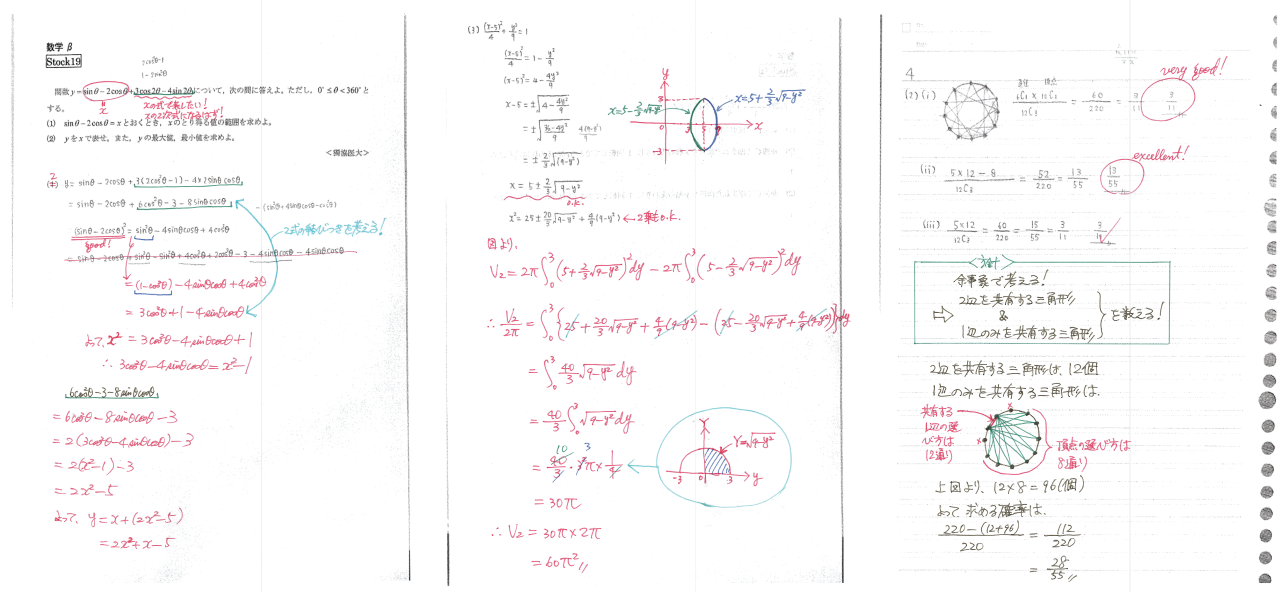 数学 β
Stock19
2cos²θ-1
1-2sin²θ
関数 y=sinθ-2cosθ+3cos2θ-4sin2θについて,次の問に答えよ。ただし,0°≤θ<360°と
する。
x
xの式で表したい!
(1) sinθ-2cosθ=x とおくとき,xのとり得る値の範囲を求めよ。
(2) yをxで表せ。また,yの最大値,最小値を求めよ。
<獨協医大>
y=sinθ-2cosθ+3(2cos²θ-1)-4×2sinθcosθ
=sinθ-2cosθ+6cos²θ-3-8sinθcosθ
-(sin²θ+4sinθcosθ-cos²θ)
(sinθ-2cosθ)²=sin²θ-4sinθcosθ+4cos²θ
good!
2式の結びつきを考える!
=(1-cos²θ)-4sinθcosθ+4cos²θ
=3cos²θ+1-4sinθcosθ
よって、x²=3cos²θ-4sinθcosθ+1
∴ 3cos²θ-4sinθcosθ=x²-1
6cos²θ-3-8sinθcosθ
=6cos²θ-8sinθcosθ-3
=2(3cos²θ-4sinθcosθ)-3
=2(x²-1)-3
=2x²-5
よって、y=x+(2x²-5)
=2x²+x-5
(3) (x-5)²/4+y²/9=1
(x-5)²/4=1-y²/9
(x-5)²=4-4y²/9
x-5=±√(4-4y²/9)
=±√((36-4y²)/9) 4(9-y²)/9
=±2/3√(9-y²)
x=5±2/3√(9-y²)
o.k.
x²=25±20/3√(9-y²)+4/9(9-y²) ←2乗もO.K.
y
3
x=5-2/3√(9-y²)
x=5+2/3√(9-y²)
0 3 5 7 x
-3
図より、
V₂=2π∫₀³(5+2/3√(9-y²))²dy-2π∫₀³(5-2/3√(9-y²))²dy
∴ V₂/2π=∫₀³{25+20/3√(9-y²)+4/9(9-y²)-(25-20/3√(9-y²)+4/9(9-y²))}dy
=∫₀³ 40/3√(9-y²)dy
=40/3∫₀³√(9-y²)dy
10 3
=40/3・3²π×1/4
Y
Y=√(9-y²)
-3 0 3 y
=30π
∴ V₂=30π×2π
=60π²
4
very good!
(2)(i) 直径 頂点
6C1×10C1/12C3 = 60/220 = 3/11 3/11
excellent!
(ii) 5×12-8/12C3 = 52/220 = 13/55 13/55
(iii) 5×12/12C3 = 60/220 = 15/55 = 3/11 3/11
<方針>
余事象で考える!
⇨ 2辺を共有する三角形
&
1辺のみを共有する三角形
を数える!
2辺を共有する三角形は、12個
1辺のみを共有する三角形は、
共有する
1辺の選
び方は
12通り
頂点の選び方は
8通り
上図より、12×8=96(個)
よって 求める確率は、
220-(12+96)/220 = 112/220
= 28/55